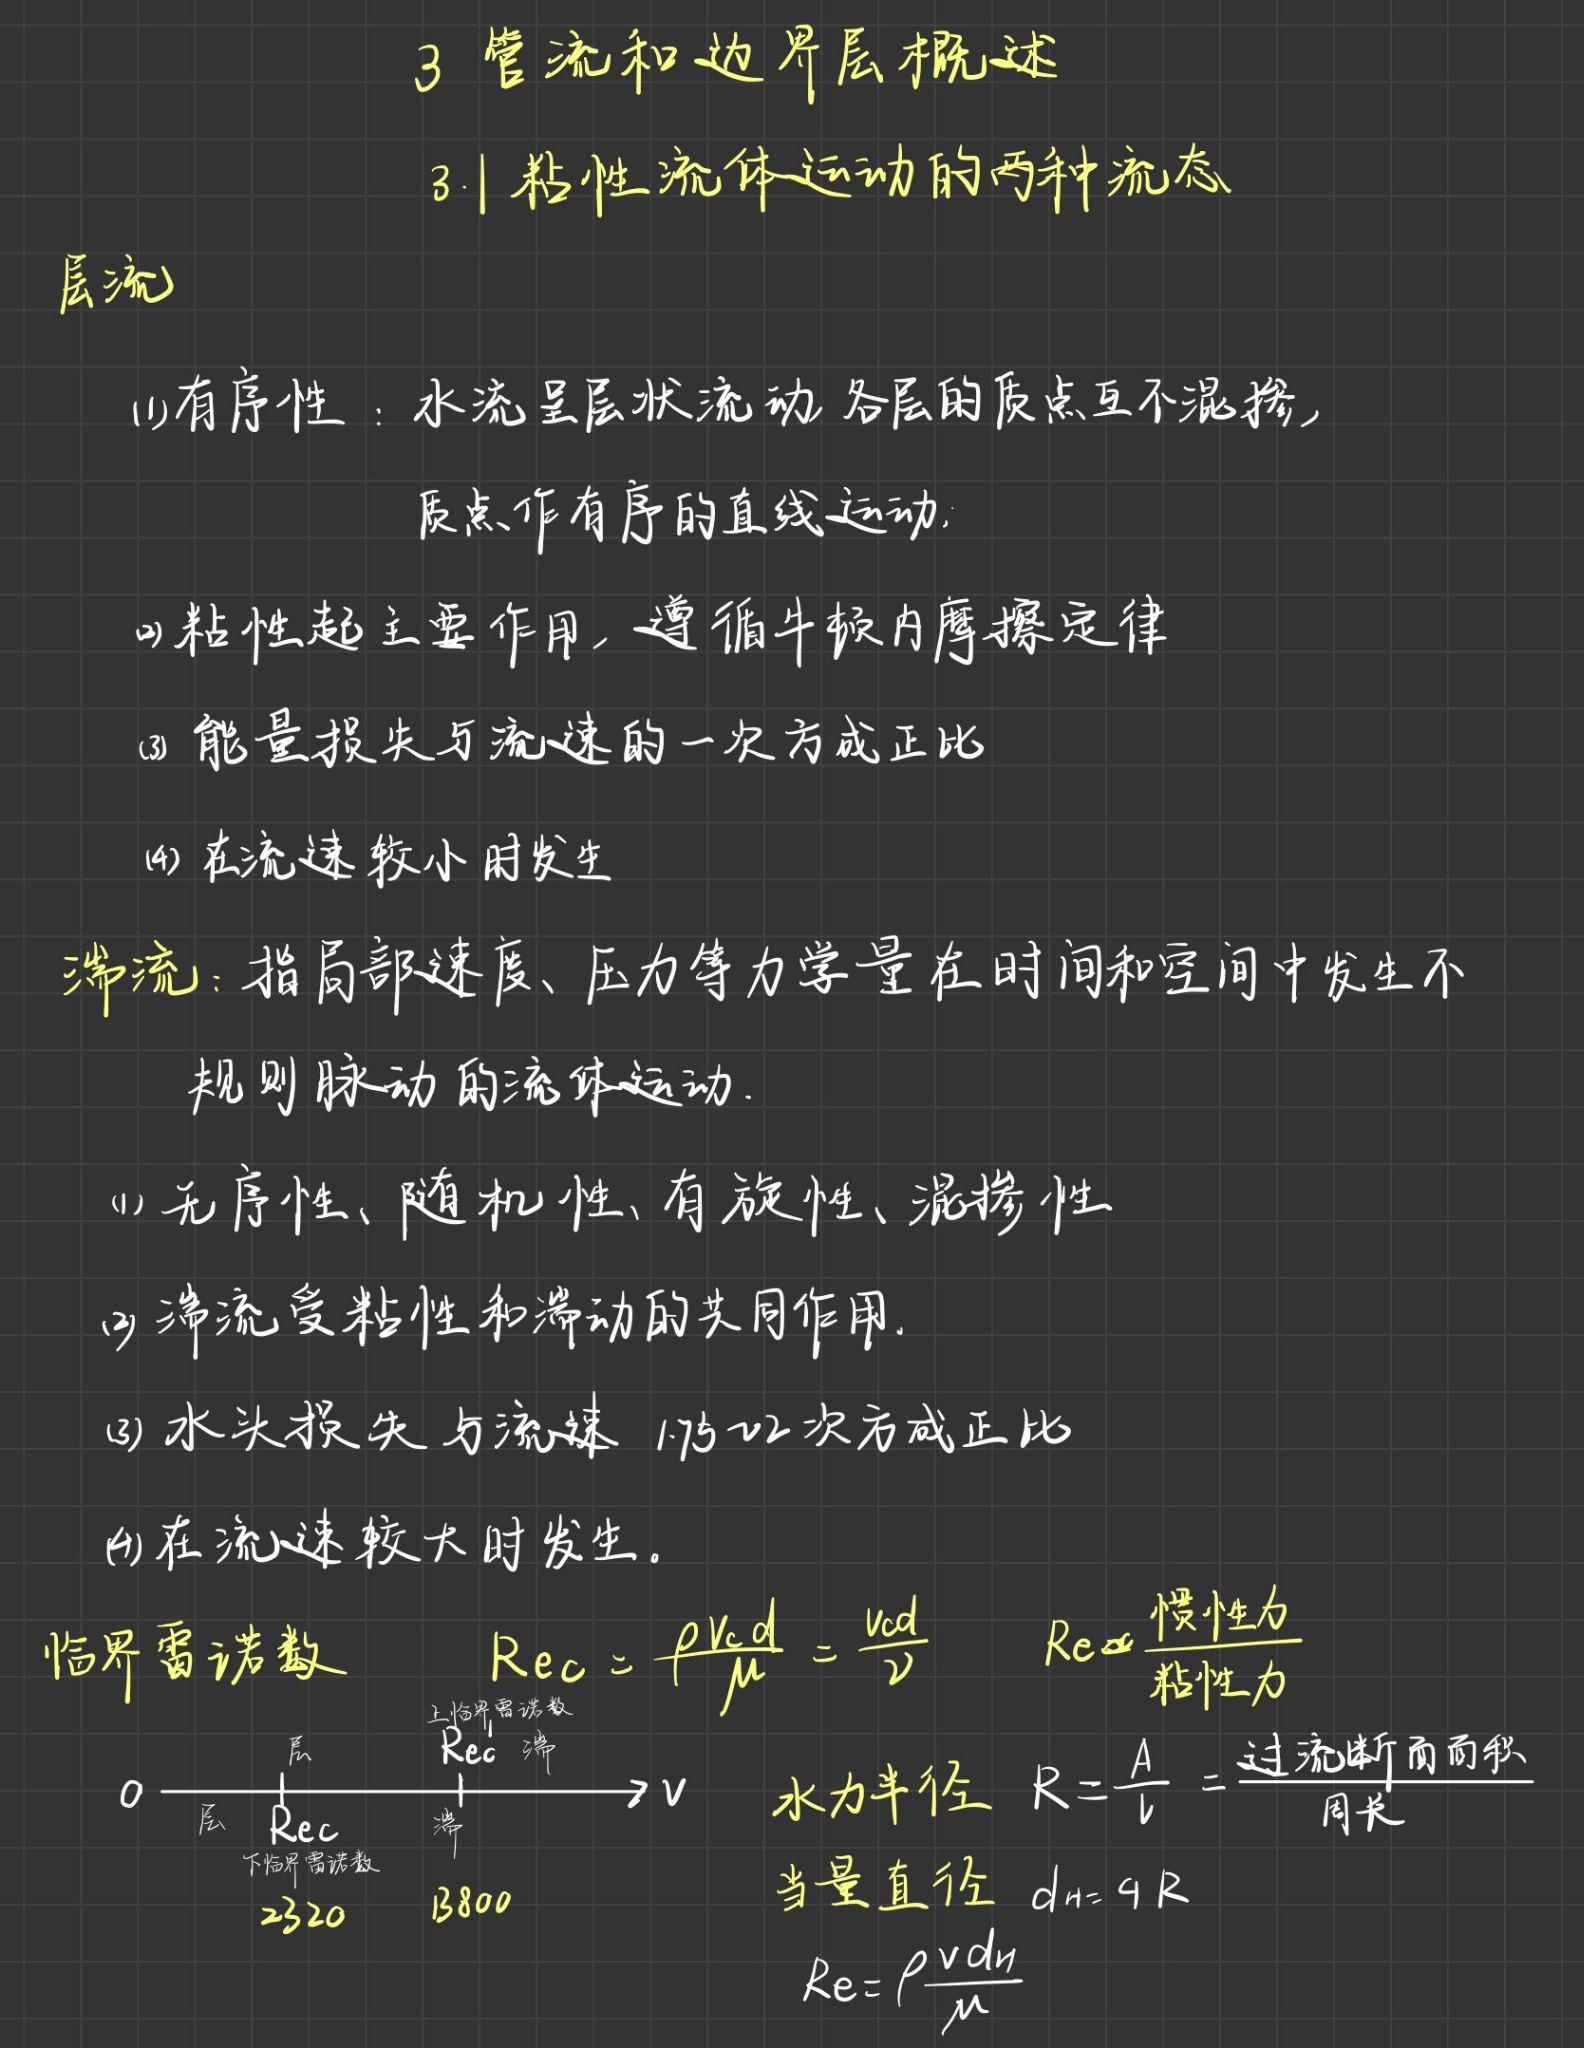 3 管流和边界层概述
3.1 粘性流体运动的两种流态
层流
(1)有序性：水流呈层状流动 各层的质点互不混掺，
质点作有序的直线运动;
(2) 粘性起主要作用，遵循牛顿内摩擦定律
(3) 能量损失与流速的一次方成正比
(4) 在流速较小时发生
湍流：指局部速度、压力等力学量在时间和空间中发生不
规则脉动的流体运动.
(1) 无序性、随机性、有旋性、混掺性
(2) 湍流受粘性和湍动的共同作用.
(3) 水头损失与流速 1.75~2次方成正比
(4) 在流速较大时发生。
临界雷诺数 Rec = ρVcd/μ = Vcd/ν Re∝ 惯性力/粘性力
上临界雷诺数
层 Rec' 湍
0 V
层 Rec 湍
下临界雷诺数
2320 13800
水力半径 R = A/l = 过流断面面积/周长
当量直径 dH = 4R
Re = ρ vdH/μ